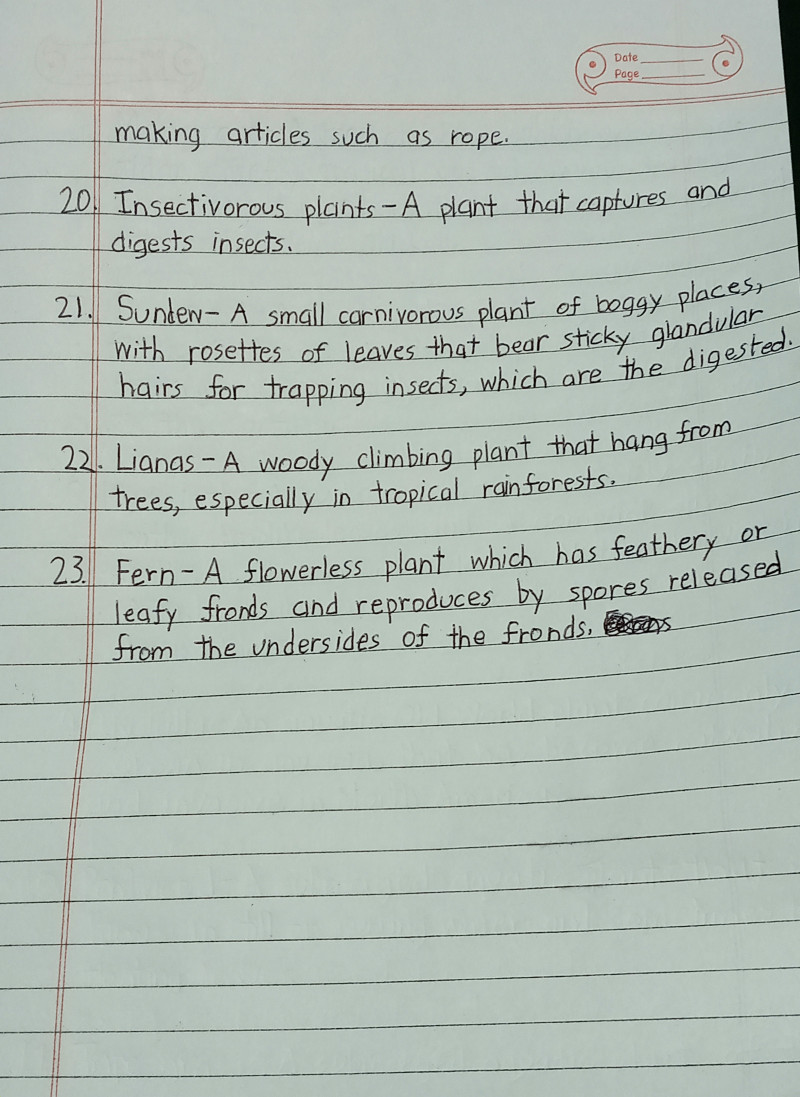 Date
Page
making articles such as rope.
20. Insectivorous plants - A plant that captures and
digests insects.
21. Sundew - A small carnivorous plant of boggy places,
with rosettes of leaves that bear sticky glandular
hairs for trapping insects, which are the digested.
22. Lianas - A woody climbing plant that hang from
trees, especially in tropical rainforests.
23. Fern - A flowerless plant which has feathery or
leafy fronds and reproduces by spores released
from the undersides of the fronds.